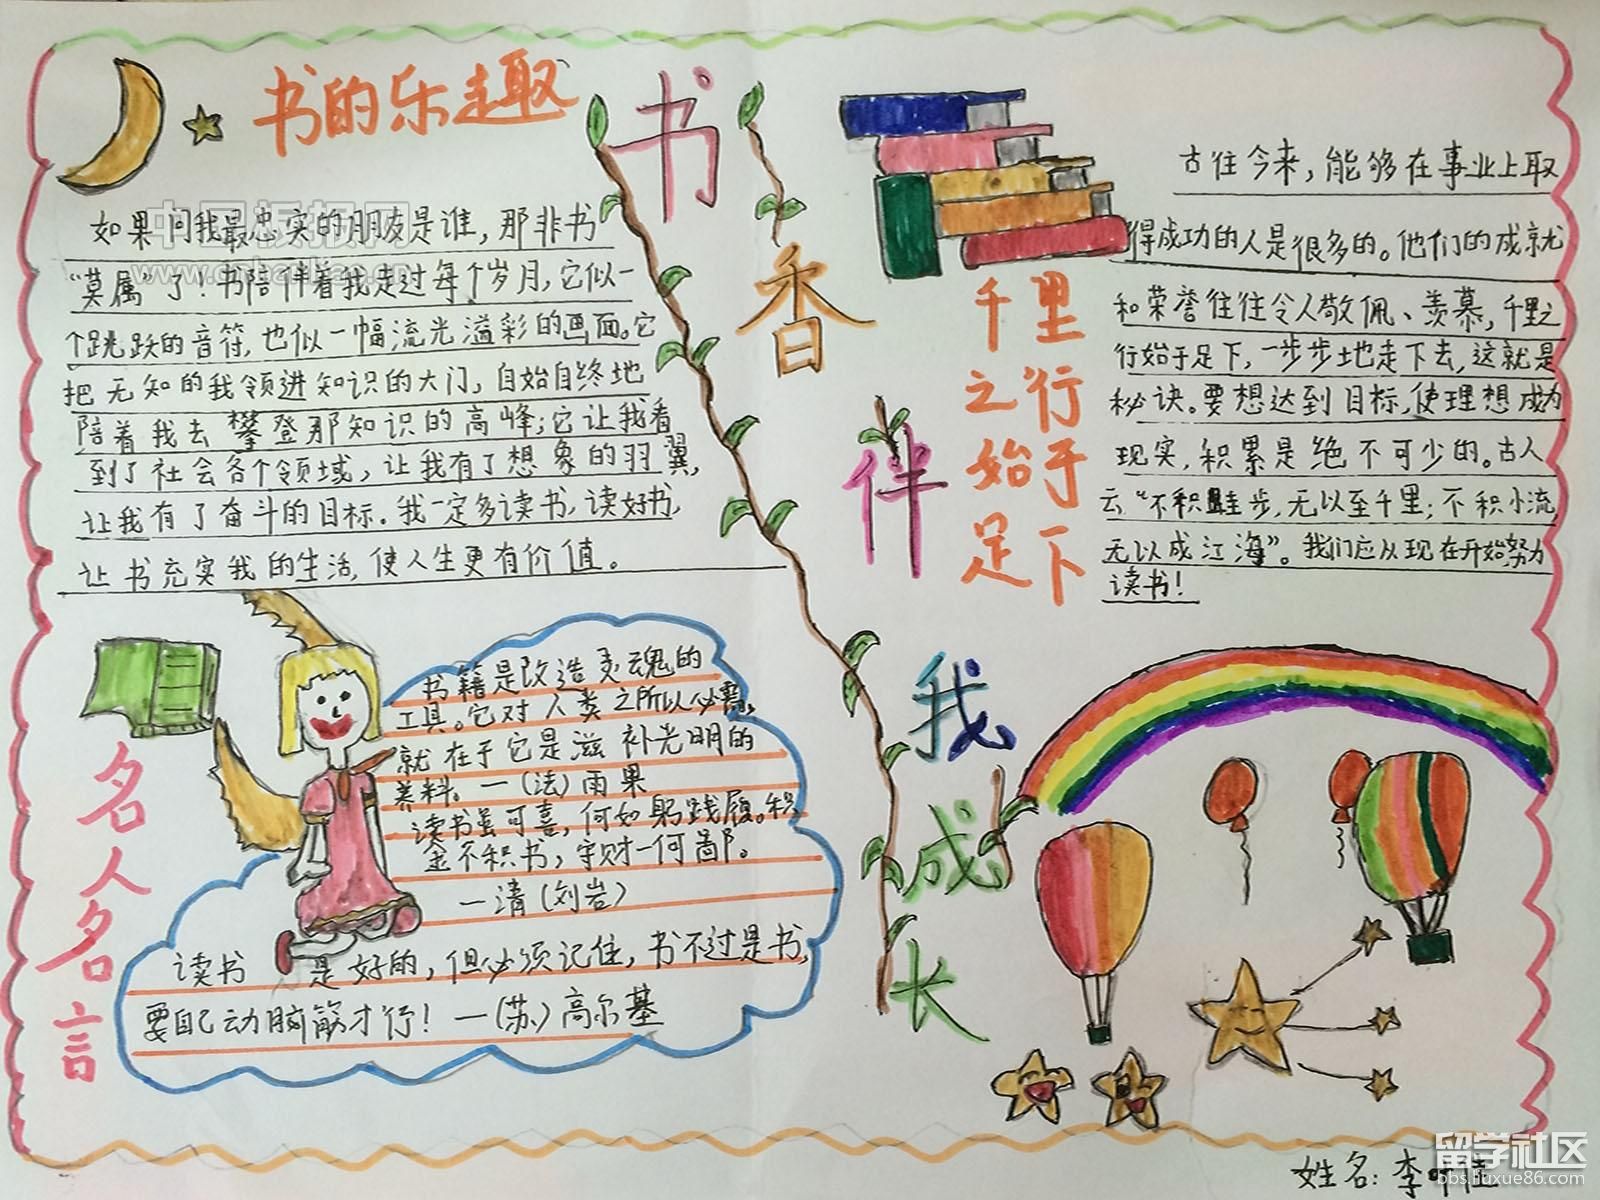 书的乐趣
如果问我最忠实的朋友是谁，那非书
“莫属”了！书陪伴着我走过每个岁月，它似一
个跳跃的音符，也似一幅流光溢彩的画面。它
把无知的我领进知识的大门，自始自终地
陪着我去攀登那知识的高峰；它让我看
到了社会各个领域，让我有了想象的羽翼，
让我有了奋斗的目标。我一定多读书，读好书，
让书充实我的生活，使人生更有价值。
书
香
伴
我
成
长
千里
之行
始于
足下
古往今来，能够在事业上取
得成功的人是很多的。他们的成就
和荣誉往往令人敬佩、羡慕，千里之
行始于足下，一步步地走下去，这就是
秘诀。要想达到目标，使理想成为
现实，积累是绝不可少的。古人
云“不积跬步，无以至千里；不积小流，
无以成江海”。我们应从现在开始，努力
读书！
名人名言
书籍是改造灵魂的
工具。它对人类之所以必需，
就在于它是滋补光明的
养料。—（法）雨果
读书虽可喜，何如躬践履。积
金不积书，守财一何鄙。
—清（刘岩）
读书 是好的，但必须记住，书不过是书，
要自己动脑筋才行！—（苏）高尔基
姓名：李叶佳
中国板报网
www.cnbanbao.cn
留学社区
bbs.liuxue86.com